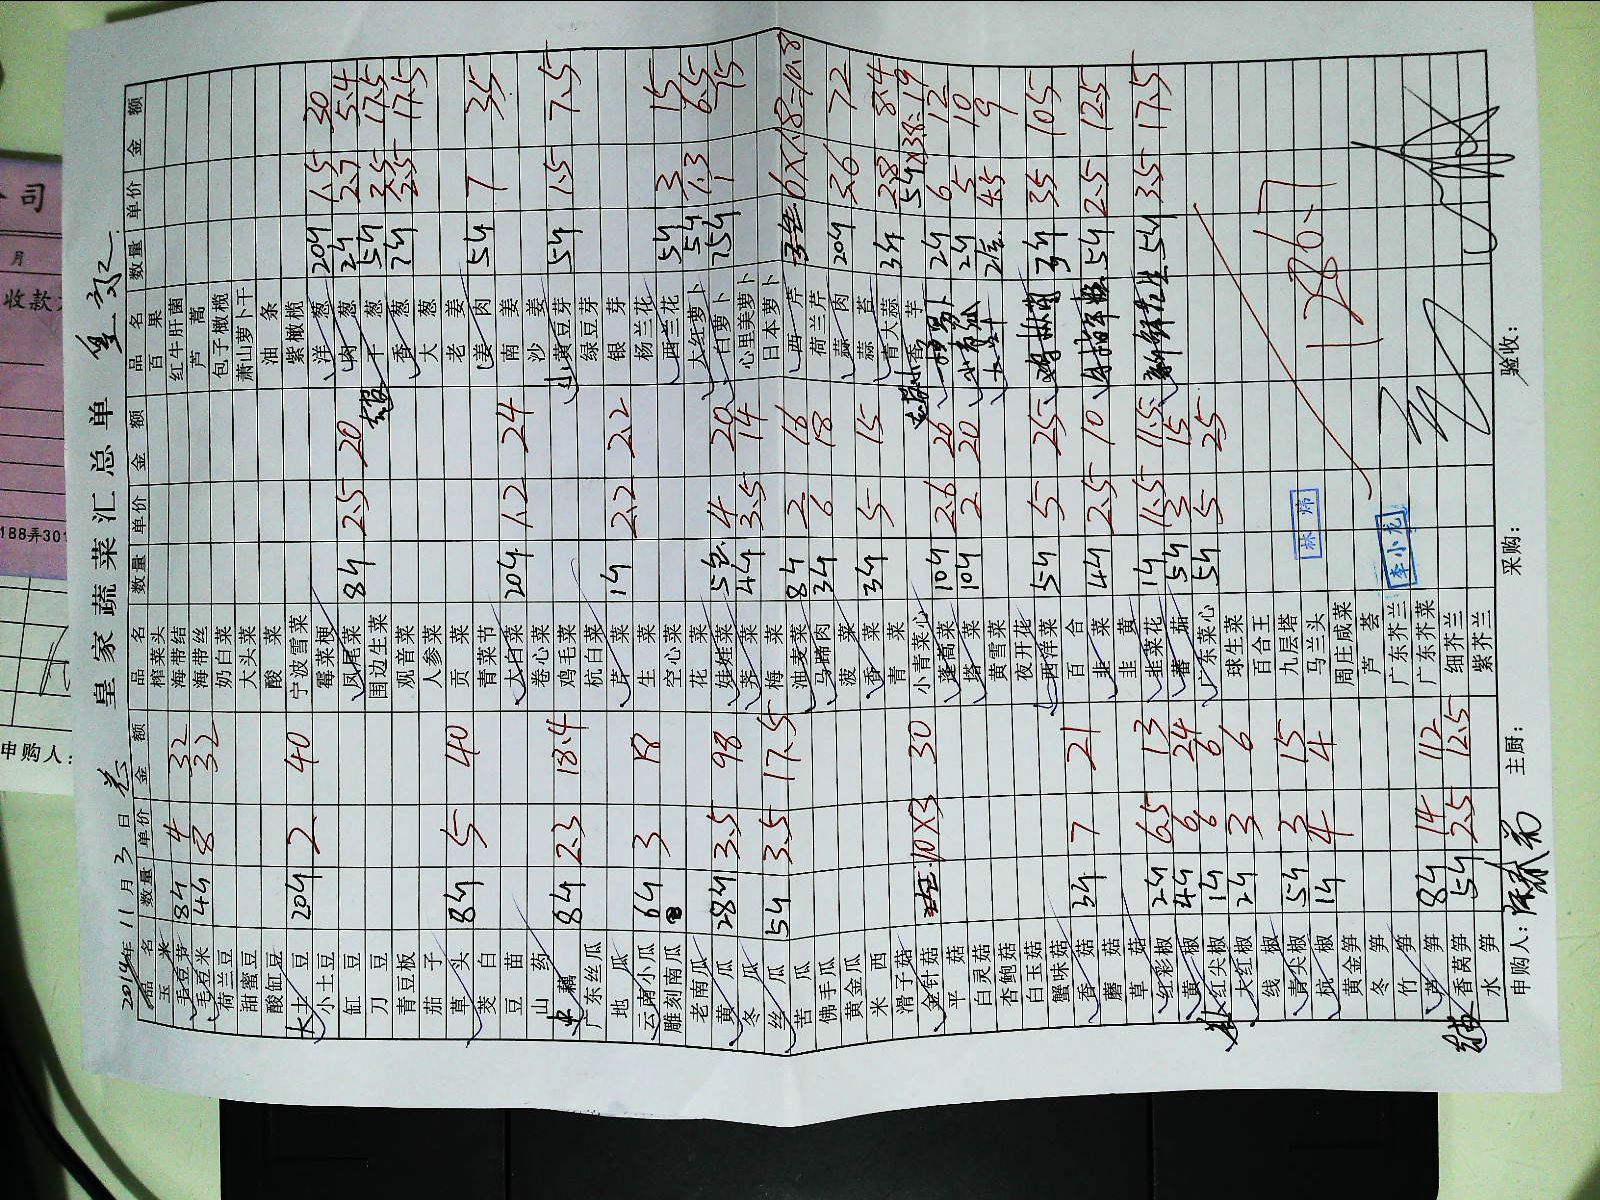 皇家蔬菜汇总单
2014年 11月 3日
品名 数量 单价 金额 品名 数量 单价 金额 品名 数量 单价 金额
玉米 榨菜头 百果
毛豆节 8斤 4 32 海带结 红牛肝菌
毛豆米 4斤 8 32 海带丝 芦蒿
荷兰豆 奶白菜 包子橄榄
甜蜜豆 大头菜 萧山萝卜干
酸缸豆 酸菜 油条
大土豆 20斤 2 40 宁波雪菜 紫橄榄
小土豆 霉菜梗 洋葱 20斤 1.5 30
缸豆 凤尾菜 8斤 2.5 20 肉葱 2斤 2.7 5.4
刀豆 围边生菜 干葱 5斤 3.5 17.5
青豆板 观音菜 香葱 7斤 2.5 17.5
茄子 人参菜 大葱
草头 8斤 5 40 贡菜 老姜
茭白 青菜节 姜肉 5斤 7 35
豆苗 大白菜 20斤 1.2 24 南姜
山药 卷心菜 沙姜
藕 8斤 2.3 18.4 鸡毛菜 黄豆芽 5斤 1.5 7.5
广东丝瓜 杭白菜 绿豆芽
地瓜 芹菜 1斤 2.2 2.2 银芽
云南小瓜 6斤 3 18 生菜 杨兰花
雕刻南瓜 空心菜 西兰花 5斤 3 15
老南瓜 花菜 大红萝卜 5斤 1.3 6.5
黄瓜 28斤 3.5 98 娃娃菜 5 4 20 白萝卜 15斤 1 15
冬瓜 荠菜 4斤 3.5 14 心里美萝卜
丝瓜 5斤 3.5 17.5 梅菜 日本萝卜
苦瓜 油麦菜 8斤 2 16 西芹 6×1.8=10.8
佛手瓜 马蹄肉 3斤 6 18 荷兰芹
黄金瓜 菠菜 蒜肉 20斤 3.6 72
米西 香菜 3斤 5 15 蒜苔
滑子菇 青菜 青大蒜 3斤 2.8 8.4
金针菇 10×3 30 小青菜心 香芋 5斤×3.8=19
平菇 蓬蒿菜 10斤 2.6 26 2斤 6 12
白灵菇 塔菜 10斤 2 20 2斤 5 10
杏鲍菇 黄雪菜 4.5 9
白玉菇 夜开花
蟹味菇 西洋菜 5斤 5 25 3斤 35 105
香菇 3斤 7 21 百合
蘑菇 韭菜 4斤 2.5 10 5斤 2.5 12.5
草菇 韭黄
红彩椒 2斤 6.5 13 韭菜花 1斤 11.5 11.5 新鲜花生 5斤 3.5 17.5
黄椒 4斤 6 24 蕃茄 5斤 3 15
红尖椒 1斤 6 6 广东菜心 5斤 5 25
大红椒 2斤 3 6 球生菜
线椒 百合王
青尖椒 5斤 3 15 九层塔
杭椒 1斤 4 4 马兰头
黄金笋 周庄咸菜
冬笋 芦荟
竹笋 广东芥兰
芦笋 8斤 14 112 广东芥菜
香莴笋 5斤 2.5 12.5 细芥兰
水笋 紫芥兰
1286.7
林炜
李小龙
申购人: 主厨: 采购: 验收:
公司
月
收款
188弄301
申购人: